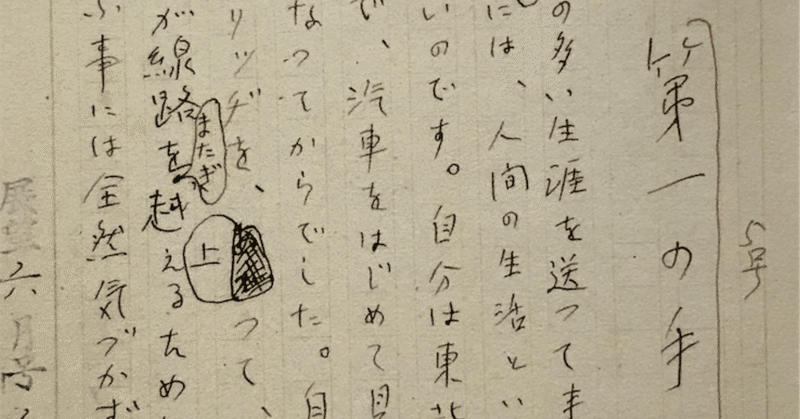 5号
第一の手
の多い生涯を送つて
には、人間の生活とい
いのです。自分は東北
で、汽車をはじめて見
なつてからでした。自
リッヂを、上つて、
が線路をまたぎ越えるため
ふ事には全然気づかず
展望六月号